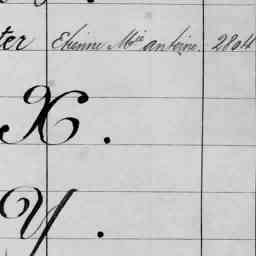 ter Etienne M^ie antoine. 2804
X.
Y.